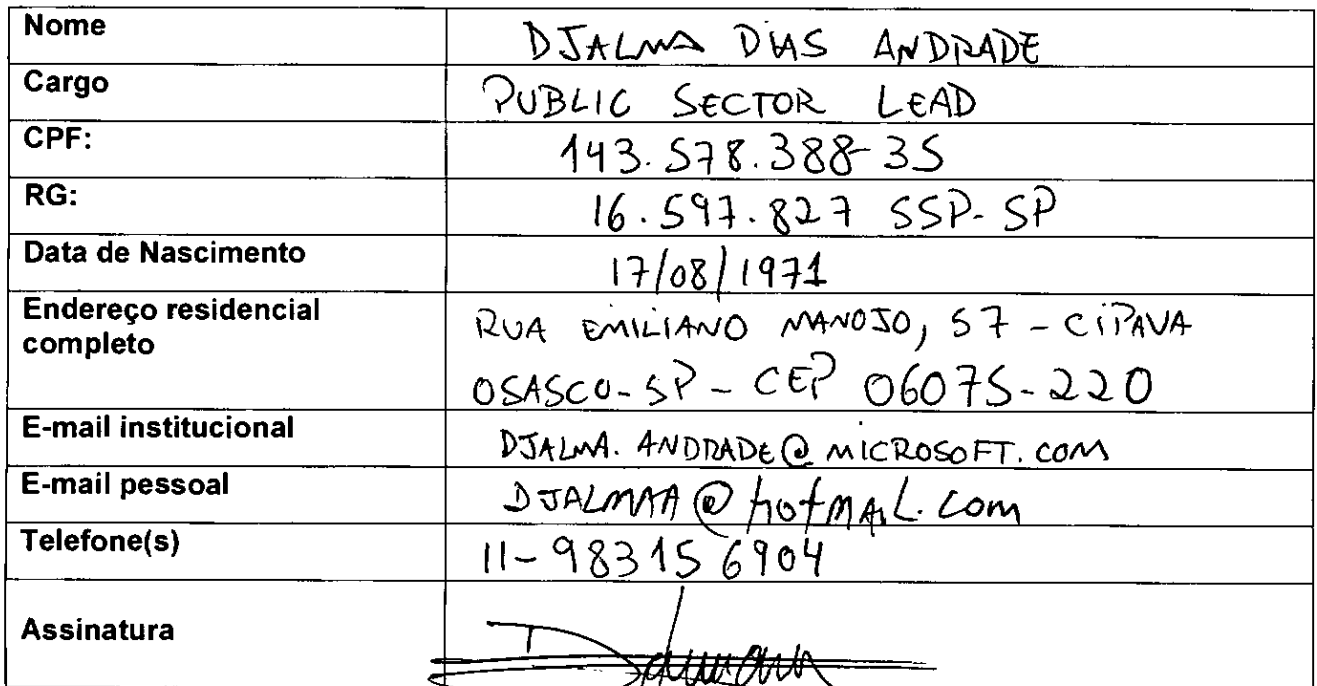 Nome DJALMA DIAS ANDRADE
Cargo PUBLIC SECTOR LEAD
CPF: 143.578.388-35
RG: 16.597.827 SSP-SP
Data de Nascimento 17/08/1971
Endereço residencial completo RUA EMILIANO MANOJO, 57 - CIPAVA
OSASCO-SP - CEP 06075-220
E-mail institucional DJALMA.ANDRADE@MICROSOFT.COM
E-mail pessoal DJALMAA@hotmAiL.com
Telefone(s) 11-98315 6904
Assinatura